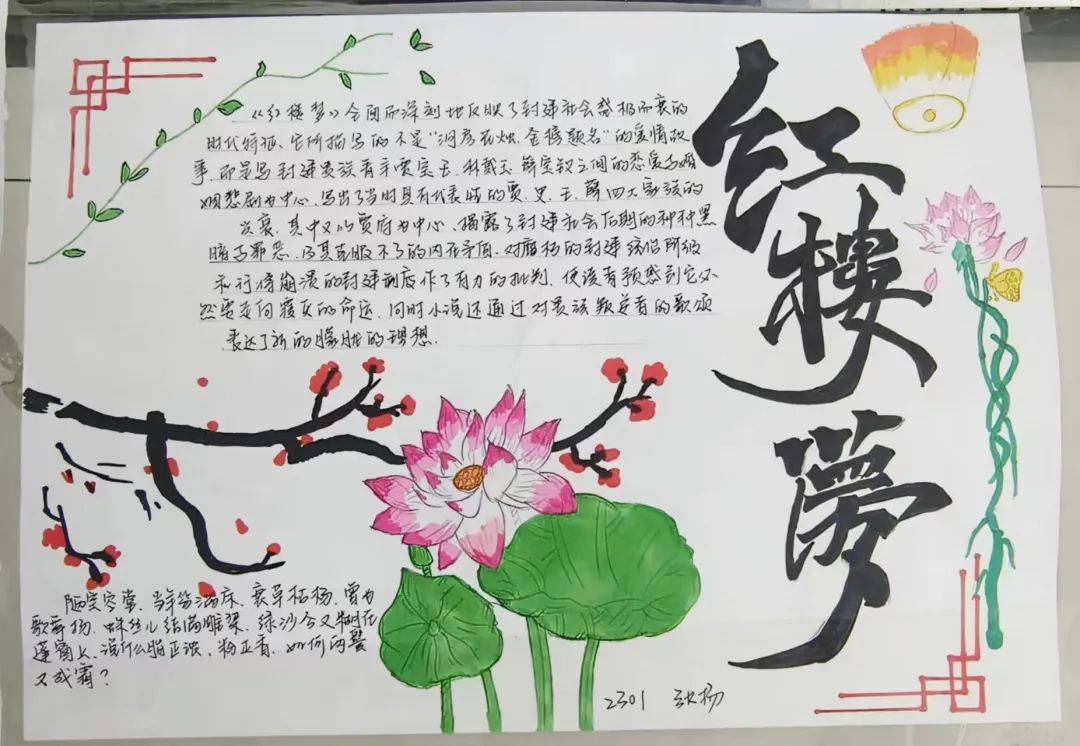 红楼梦
《红楼梦》全面而深刻地反映了封建社会盛极而衰的
时代特征、它所描写的不是“洞房花烛、金榜题名”的爱情故
事、而是写封建贵族青年贾宝玉、林黛玉、薛宝钗之间的恋爱与婚
姻悲剧为中心、写出了当时具有代表性的贾、史、王、薛四大家族的
兴衰、其中又以贾府为中心、揭露了封建社会后期的种种黑
暗与罪恶、及其克服不了的内在矛盾、对腐朽的封建统治阶级
和行将崩溃的封建制度作了有力的批判、使读者预感到它必
然要走向覆灭的命运、同时小说还通过对贵族叛逆者的歌颂
表达了新的朦胧的理想.
陋室空堂、当年笏满床、衰草枯杨、曾为
歌舞场、蛛丝儿结满雕梁、绿纱今又糊在
蓬窗上、说什么脂正浓、粉正香、如何两鬓
又成霜？
2301 张杨